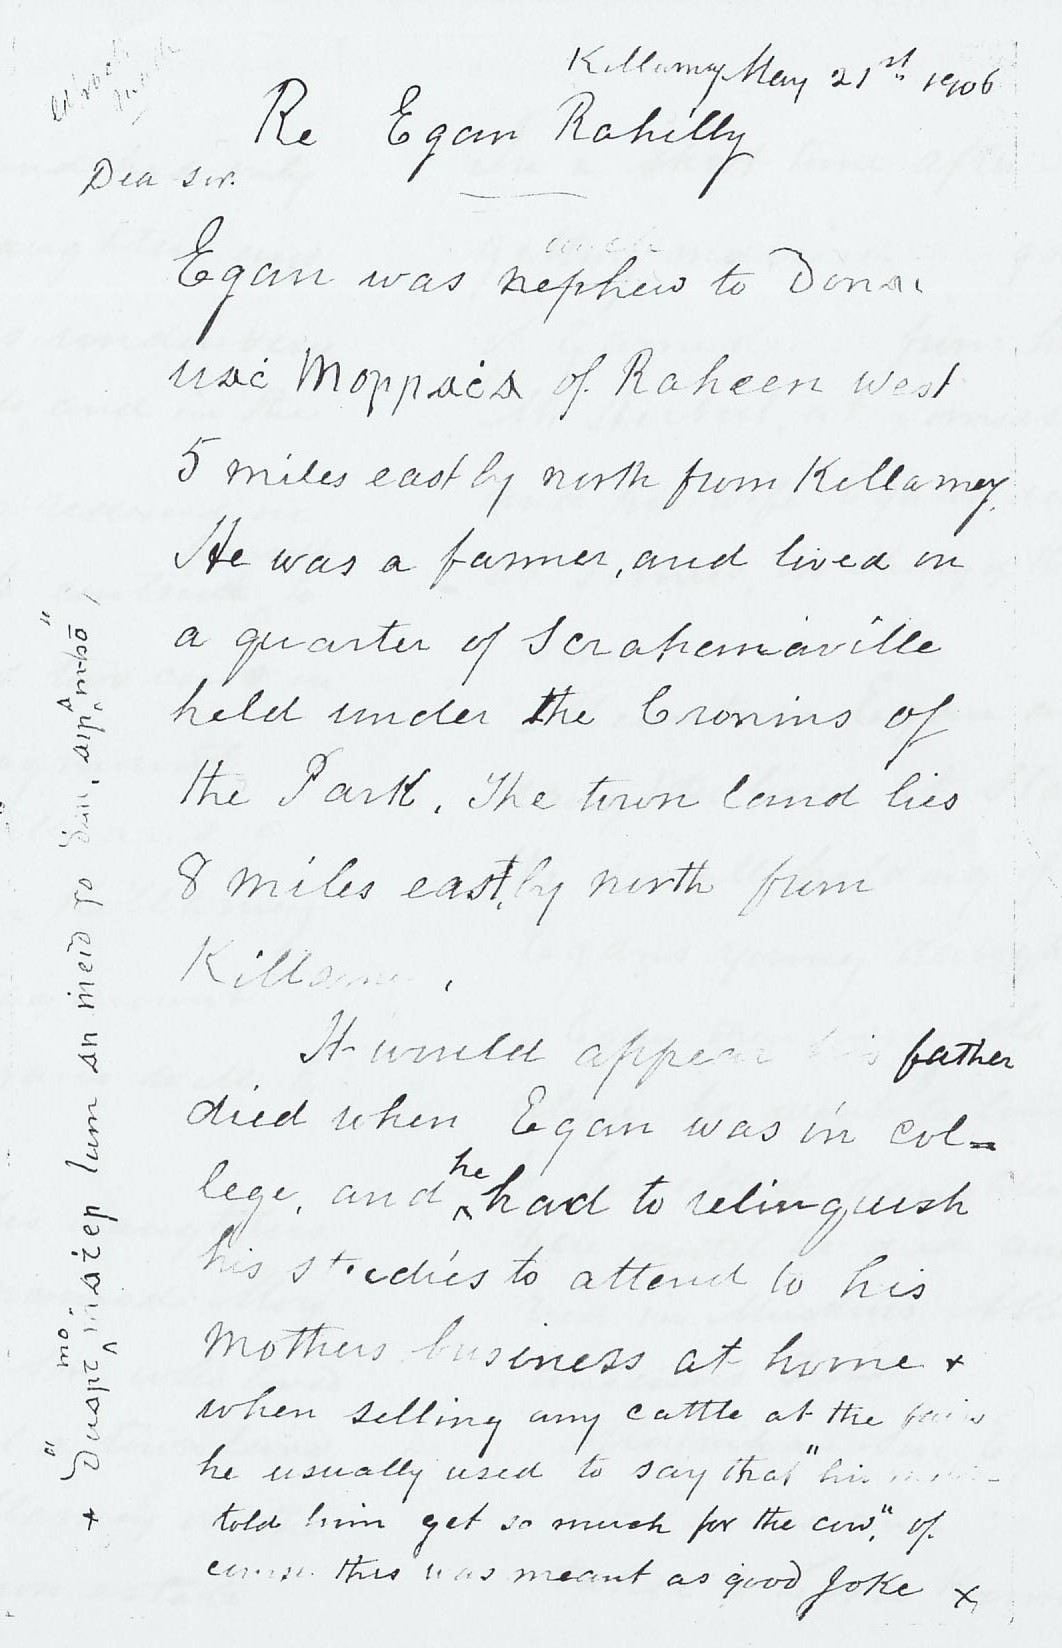 Killarney May 21st 1906
Re Egan Rahilly
Dea sir.
uncle
Egan was nephew to Donn
mac Morraca of Raheen west
5 miles east by north from Killarney.
He was a farmer, and lived on
a quarter of Scrahannaville
held under the Cronins of
the Park. The town land lies
8 miles east, by north from
Killarney.
It would appear his father
died when Egan was in col=
lege, and he had to relinquish
his studies to attend to his
Mothers business at home +
when selling any cattle at the fairs
he usually used to say that "his
told him get so much for the cow," of
course this was meant as good Joke x